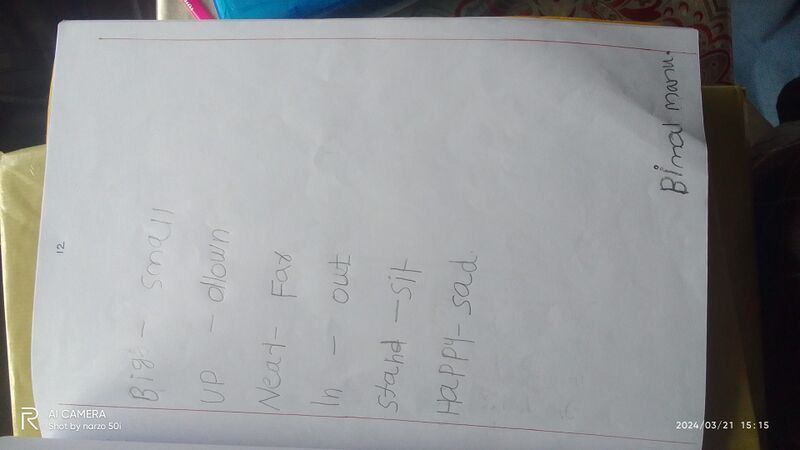 12
Big - small
UP - down
Near - Far
In - out
Stand - Sit
Happy - sad.
Bimal manu.
AI CAMERA
Shot by narzo 50i
2024/03/21 15:15